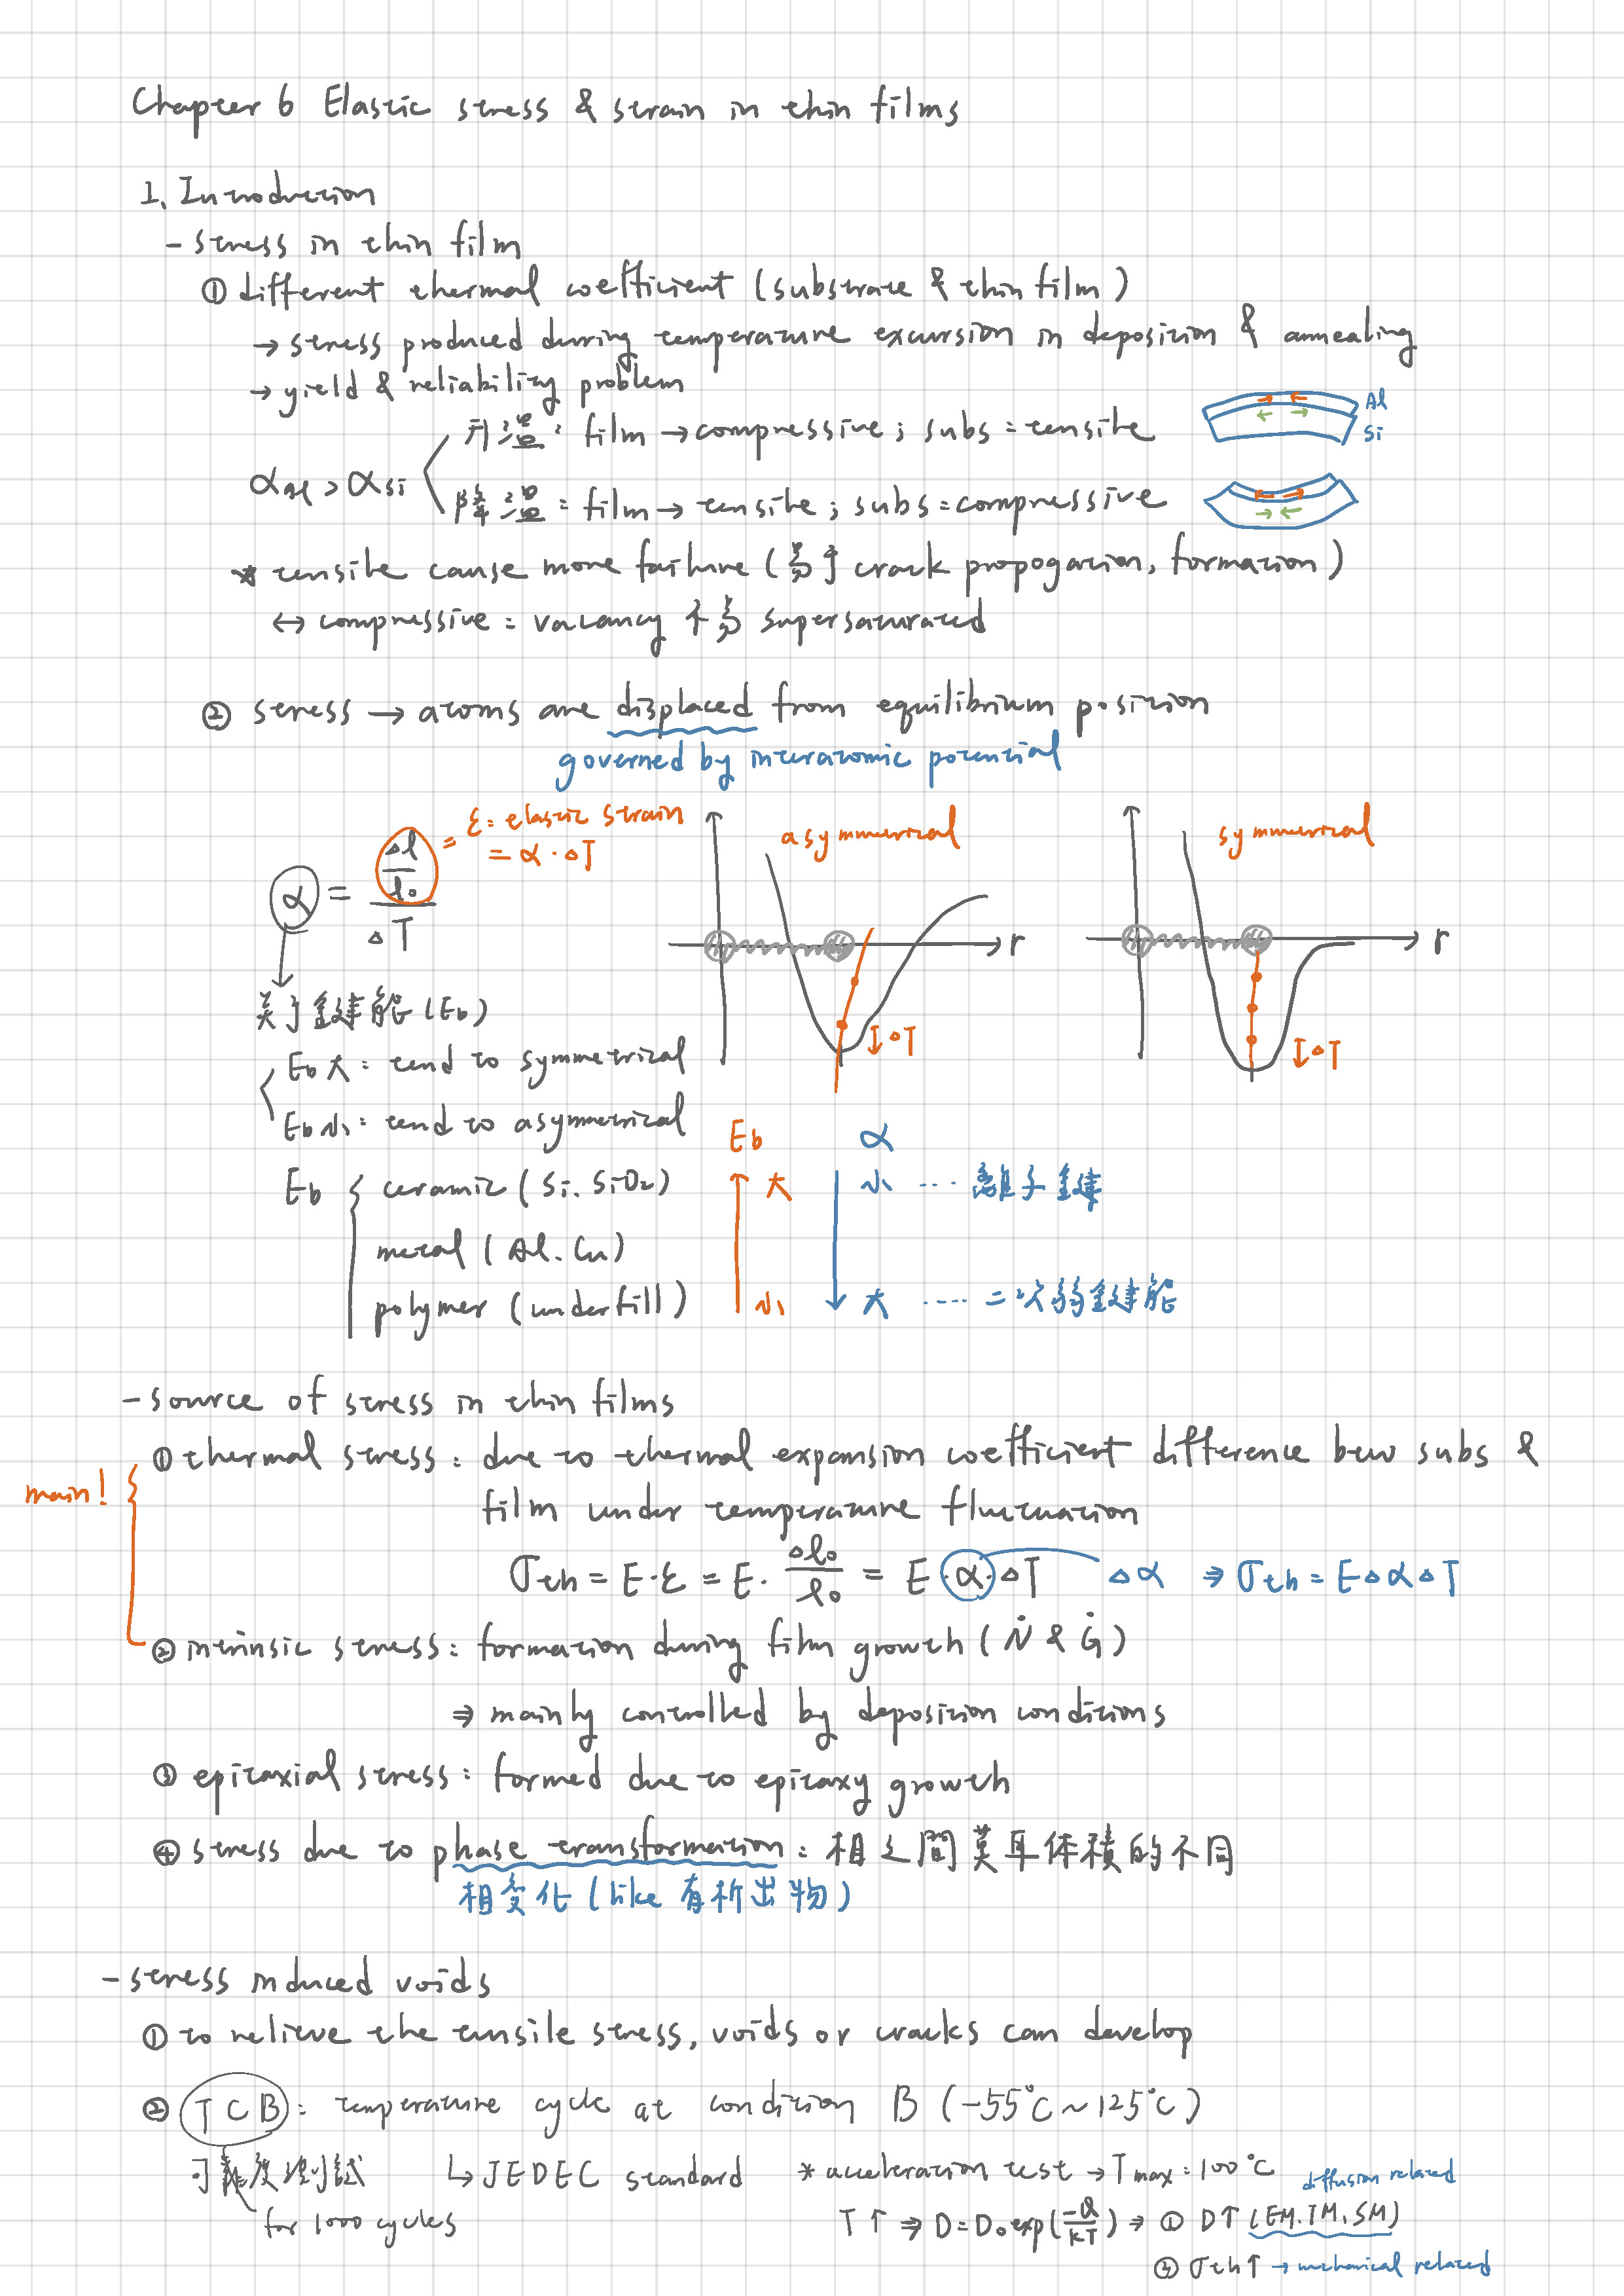 Chapter 6 Elastic stress & strain in thin films
1. Introduction
- stress in thin film
① different thermal coefficient (substrate & thin film)
→ stress produced during temperature excursion in deposition & annealing
→ yield & reliability problem
升溫: film → compressive; subs = tensile
Al
Si
αAl > αSi
降溫 = film → tensile; subs = compressive
* tensile cause more failure (易于 crack propogation, formation)
↔ compressive = vacancy 不易 supersaturated
② stress → atoms are displaced from equilibrium position
governed by interatomic potential
α = (Δl/l₀)/ΔT
= ε: elastic strain
= α·ΔT
asymmetrical
symmetrical
r
r
ΔT
ΔT
关于鍵能 (Eb)
Eb 大: tend to symmetrical
Eb 小: tend to asymmetrical
Eb α
Eb { ceramic (Si. SiO₂) 大 小 ... 離子鍵
metal (Al. Cu)
polymer (underfill) 小 大 ..... = 次弱鍵能
- source of stress in thin films
main!
① thermal stress: due to thermal expansion coefficient difference btw subs &
film under temperature fluctuation
σth = E·ε = E· Δl₀/l₀ = E·α·ΔT Δα ⇒ σth = EΔαΔT
② intrinsic stress: formation during film growth (Ṅ & Ġ)
⇒ mainly controlled by deposition conditions
③ epitaxial stress: formed due to epitaxy growth
④ stress due to phase transformation: 相之間莫耳体積的不同
相变化 (like 有析出物)
- stress induced voids
① to relieve the tensile stress, voids or cracks can develop
② TCB: temperature cycle at condition B (-55°C ~ 125°C)
可靠度測試 ↳ JEDEC standard * acceleration test → Tmax = 100°C
for 1000 cycles
diffusion related
T↑ ⇒ D = D₀ exp(-Q/kT) ⇒ ① D↑ (EM. TM. SM)
② σth↑ → mechanical related